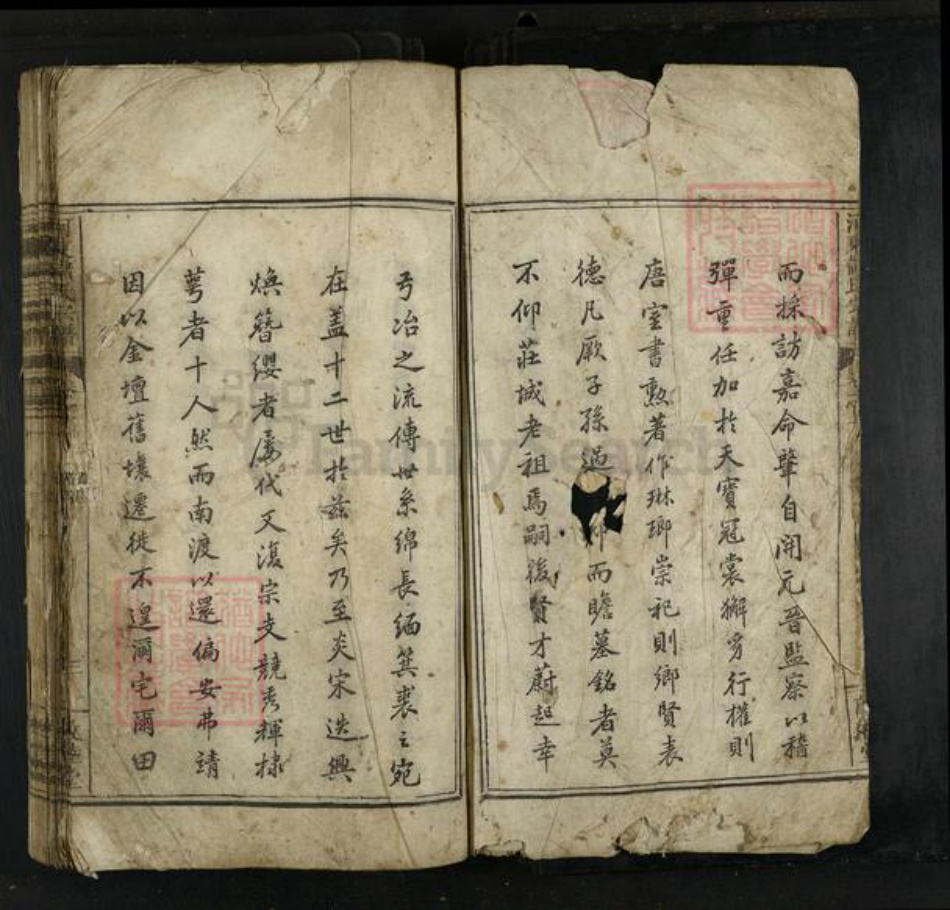 而採訪嘉命肇自開元晉監察以稽
彈重任加扵天寶冠裳獬豸行權則
唐室書勲著作琳瑯崇祀則鄉賢表
德凡厥子孫過 仰而瞻墓銘者莫
不仰莊城老祖焉嗣後賢才蔚起幸
弓冶之流傳世系綿長緬箕裘之宛
在盖十二世扵兹矣乃至炎宋迭興
煥簪纓者屡代又復宗支競秀輝棣
萼者十人然而南渡以還偏安弗靖
因以金壇舊壤遷徙不遑爾宅爾田
FamilySearch